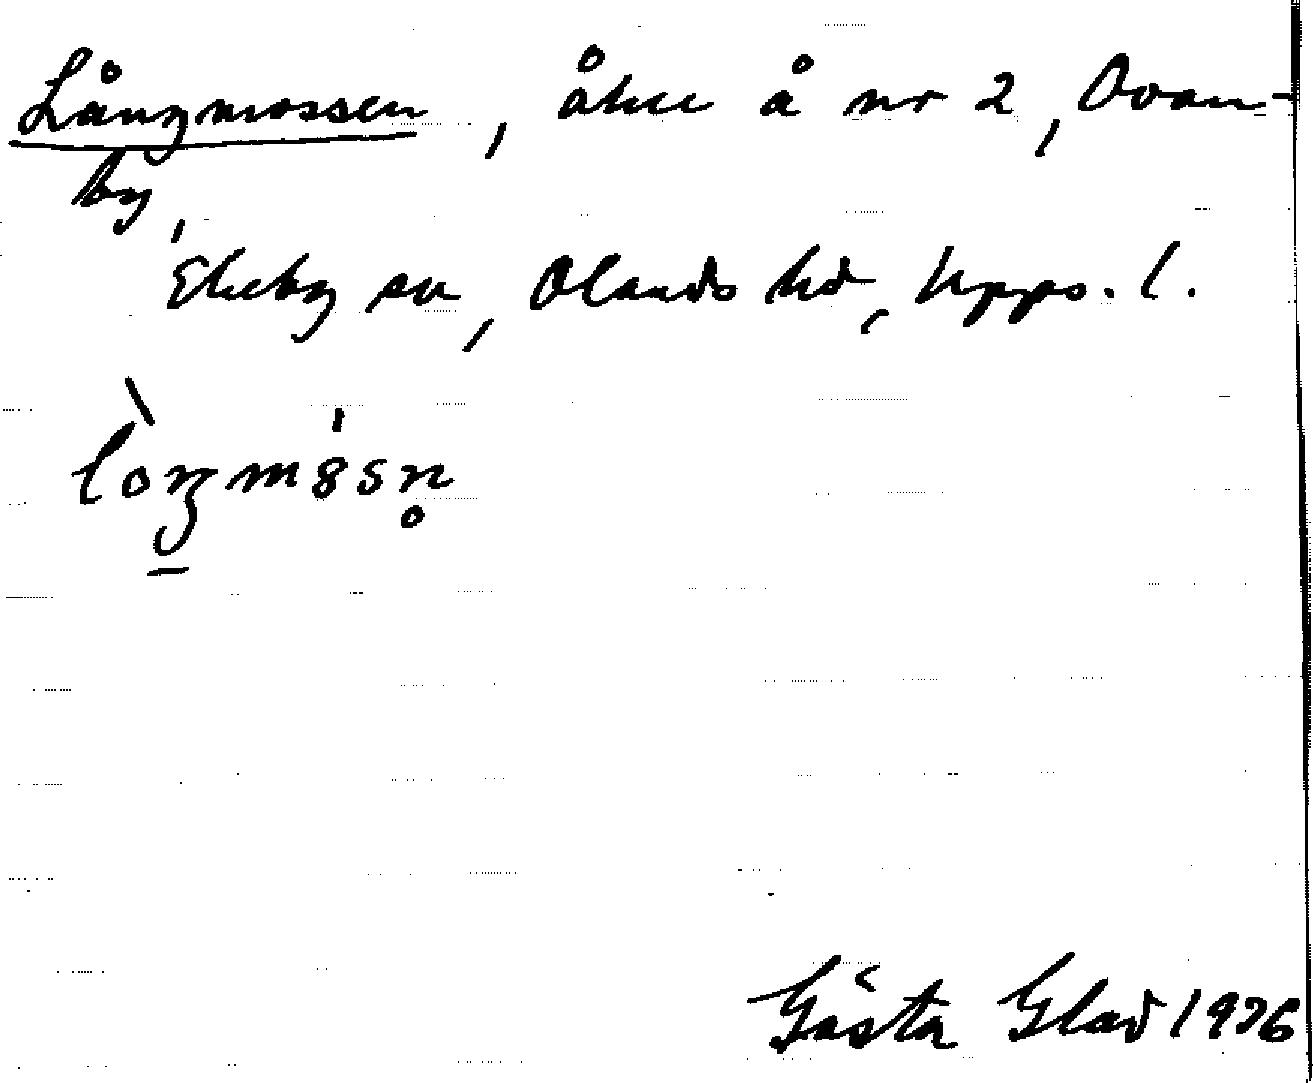 Långmossen, åker å nr 2, Ovan-
by,
Ekeby sn, Olands hd, Upps. l.
Gösta Glad 1976